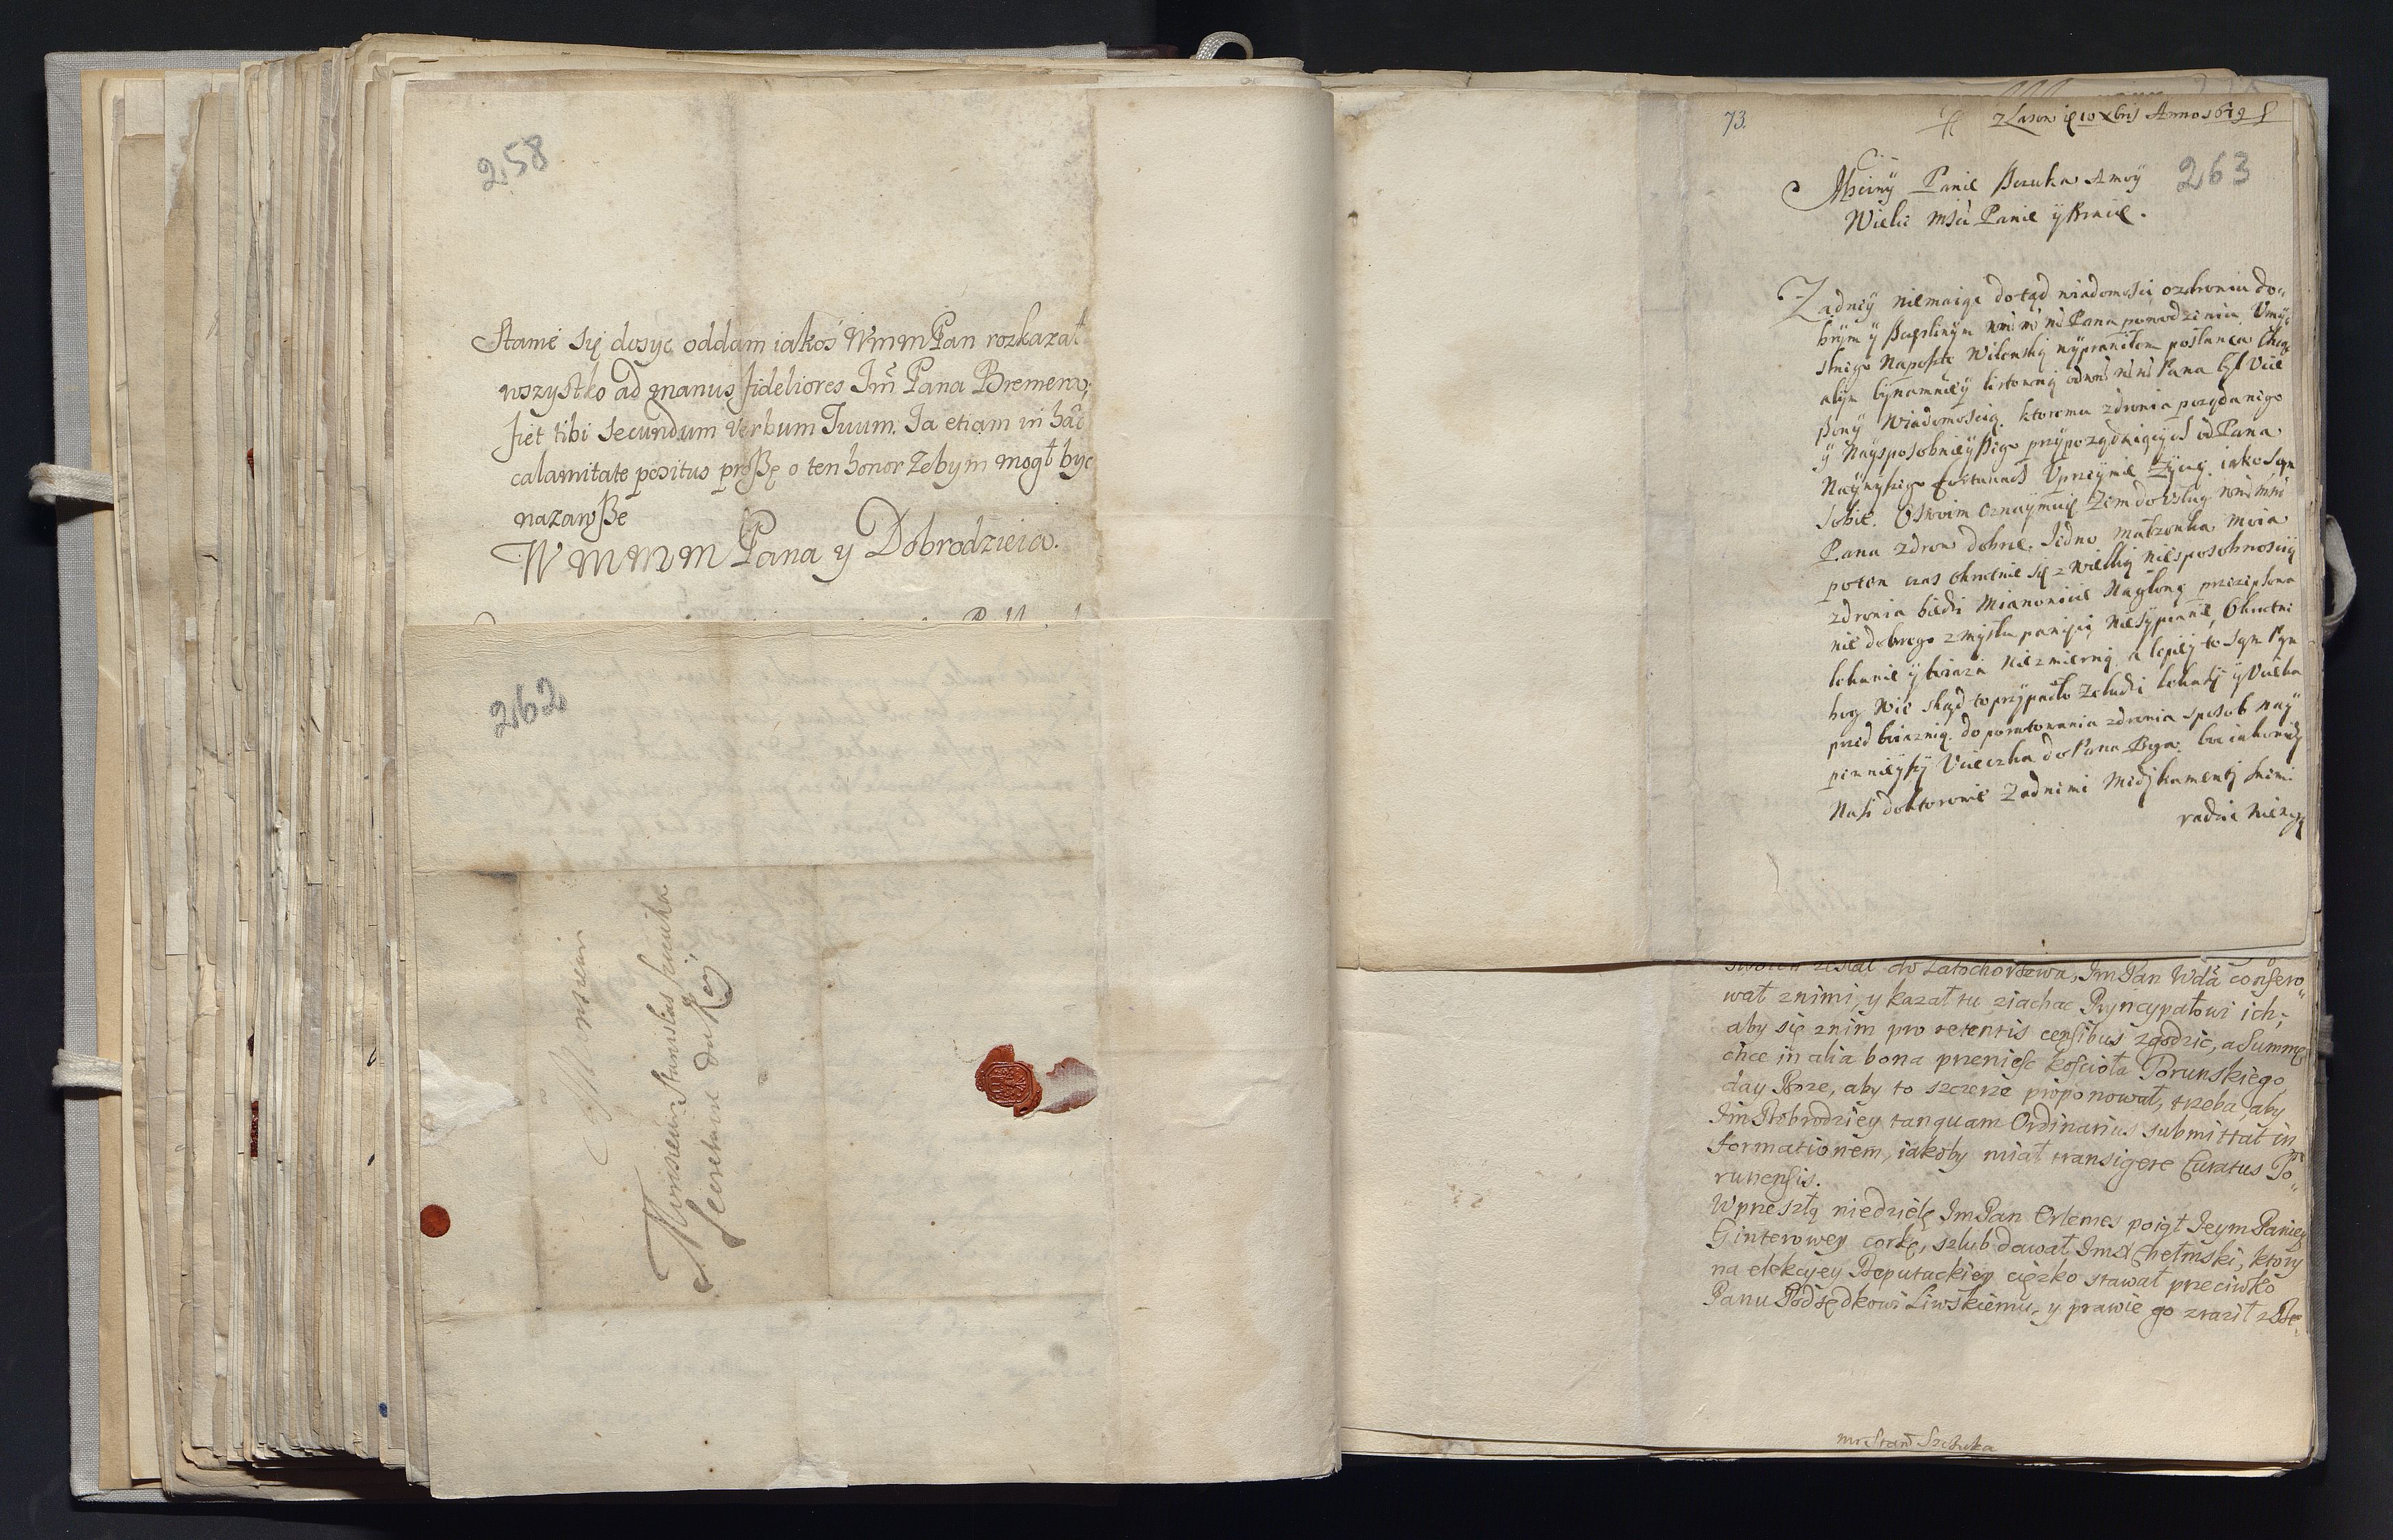 258
Stanie Się dosyc oddam iakoś WmmPan rozkazał
wszystko ad manus fideliores Jm Pana Bremera,
fiet tibi secundum verbum Tuum. Ja etiam in hac
calamitate positus proszę o ten honor Zebym mogł byc
nazawsze
W M M M Pana y Dobrodzieia.
262
A Monsieur
Monsieur Stanislas Szczuka
Secretaire du Roy
73.
10 Xbris Anno 1679
263
Msciwy Panie Szczuka A moy
Wielce Mści Panie y Bracie.
Zadney niemaiąc dotąd wiadomości o zdrowiu do„
brym y szczęśliwym Pana powodzeniu Umyś
lnego Napoczte Wilenską wyprawiłem posłanca
abym bynamniey listowną od Pana był Ucie
szony Wiadomoscią. ktoremu zdrowia pożądanego
y Naysposobnieyszego przy pożądaiących od Pana
Naywyszego fortunach Uprzeymie Zyczę. iako Sam
Sobie. O Swoim oznaymuię Zem do usług
Pana zdrow dobrze. Jedno małżonka moia
poten czas okrutnie się z wielką niesposobnoscią
zdrowia biedzi Mianowicie Nagłowę
nie dobrego zmysłu Niesypianie, Okrutne
lękanie y boiazń Niezmierną. a lepiey to Sam Pan
Bog Wie skąd to przypadło Ze ludzi lękaiy y Ucieka
przed boiaznią. do poratowania zdrowia sposob nay
pewnieyszy Ucieczka do Pana Boga.
Nasi doktorowie Zadnemi Medykamenty
radzic Niemogą
swoich zesłał do Zatochorzewa, Jm Pan Wda confero„
wał znimi, y kazał tu ziachac Pryncypałowi ich,
aby się znim pro retentis censibus zgodzic, a Summę
chce in alia bona przeniesc koscioła Porunskiego,
day Boze, aby to szczerze proponował, trzeba aby
Jm Dobrodziey tanquam Ordinarius submittat in
formationem, iakoby miał transigere Curatus Po„
runensis.
W przeszłą niedzielę Jm Pan Orlemes poiął Jeym Paniey
Ginterowey corkę, szlub dawał Jmx Chełmski, ktory
na elekcyey Deputackiey ciężko stawał przeciwko
Panu Podsędkowi Liwskiemu, y prawie go zraził z De„
mr Stan Szczuka